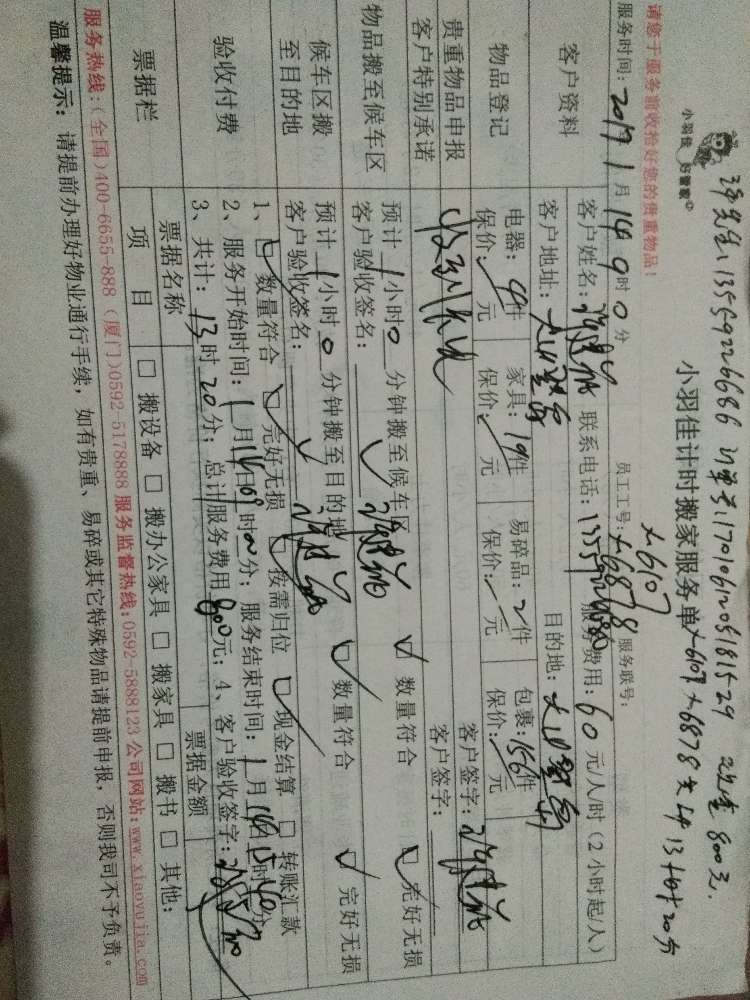 先生:13559226686 订单号:170106120518181529 800元.
小羽佳 好管家©
小羽佳计时搬家服务单 X6107 X6878 共计13时20分
请您于服务前收拾好您的贵重物品!
X6107
服务时间: 2017 1月 14 9时 0分 员工工号: X6878 服务联号:
客户资料
客户姓名: 联系电话: 服务费用: 60 元/人/时 (2小时起/人)
客户地址: 目的地:
物品登记
电器: 4件 家具: 19件 易碎品: 2件 包裹: 156件
保价: 元 保价: 元 保价: 元 保价: 元
贵重物品申报 客户签字:
客户特别承诺 客户签字:
物品搬至候车区
预计 1小时 0 分钟搬至候车区 数量符合 完好无损
客户验收签名:
候车区搬至目的地
预计 1小时 0 分钟搬至目的地 数量符合 完好无损
客户验收签名:
验收付费
1、 数量符合 完好无损 按需归位 现金结算 转账汇款
2、服务开始时间: 1月14日09时 分; 服务结束时间: 1月14日 时 分
3、共计: 13时 20分; 总计服务费用 800元; 4、客户验收签字:
票据栏
票据名称 票据金额
项 目 搬设备 搬办公家具 搬家具 搬书 其他:
服务热线:(全国)400-6655-888 (厦门)0592-5178888 服务监督热线:0592-5888123 公司网站:www.xiaoyujia.com
温馨提示: 请提前办理好物业通行手续, 如有贵重、易碎或其它特殊物品请提前申报, 否则我司不予负责。